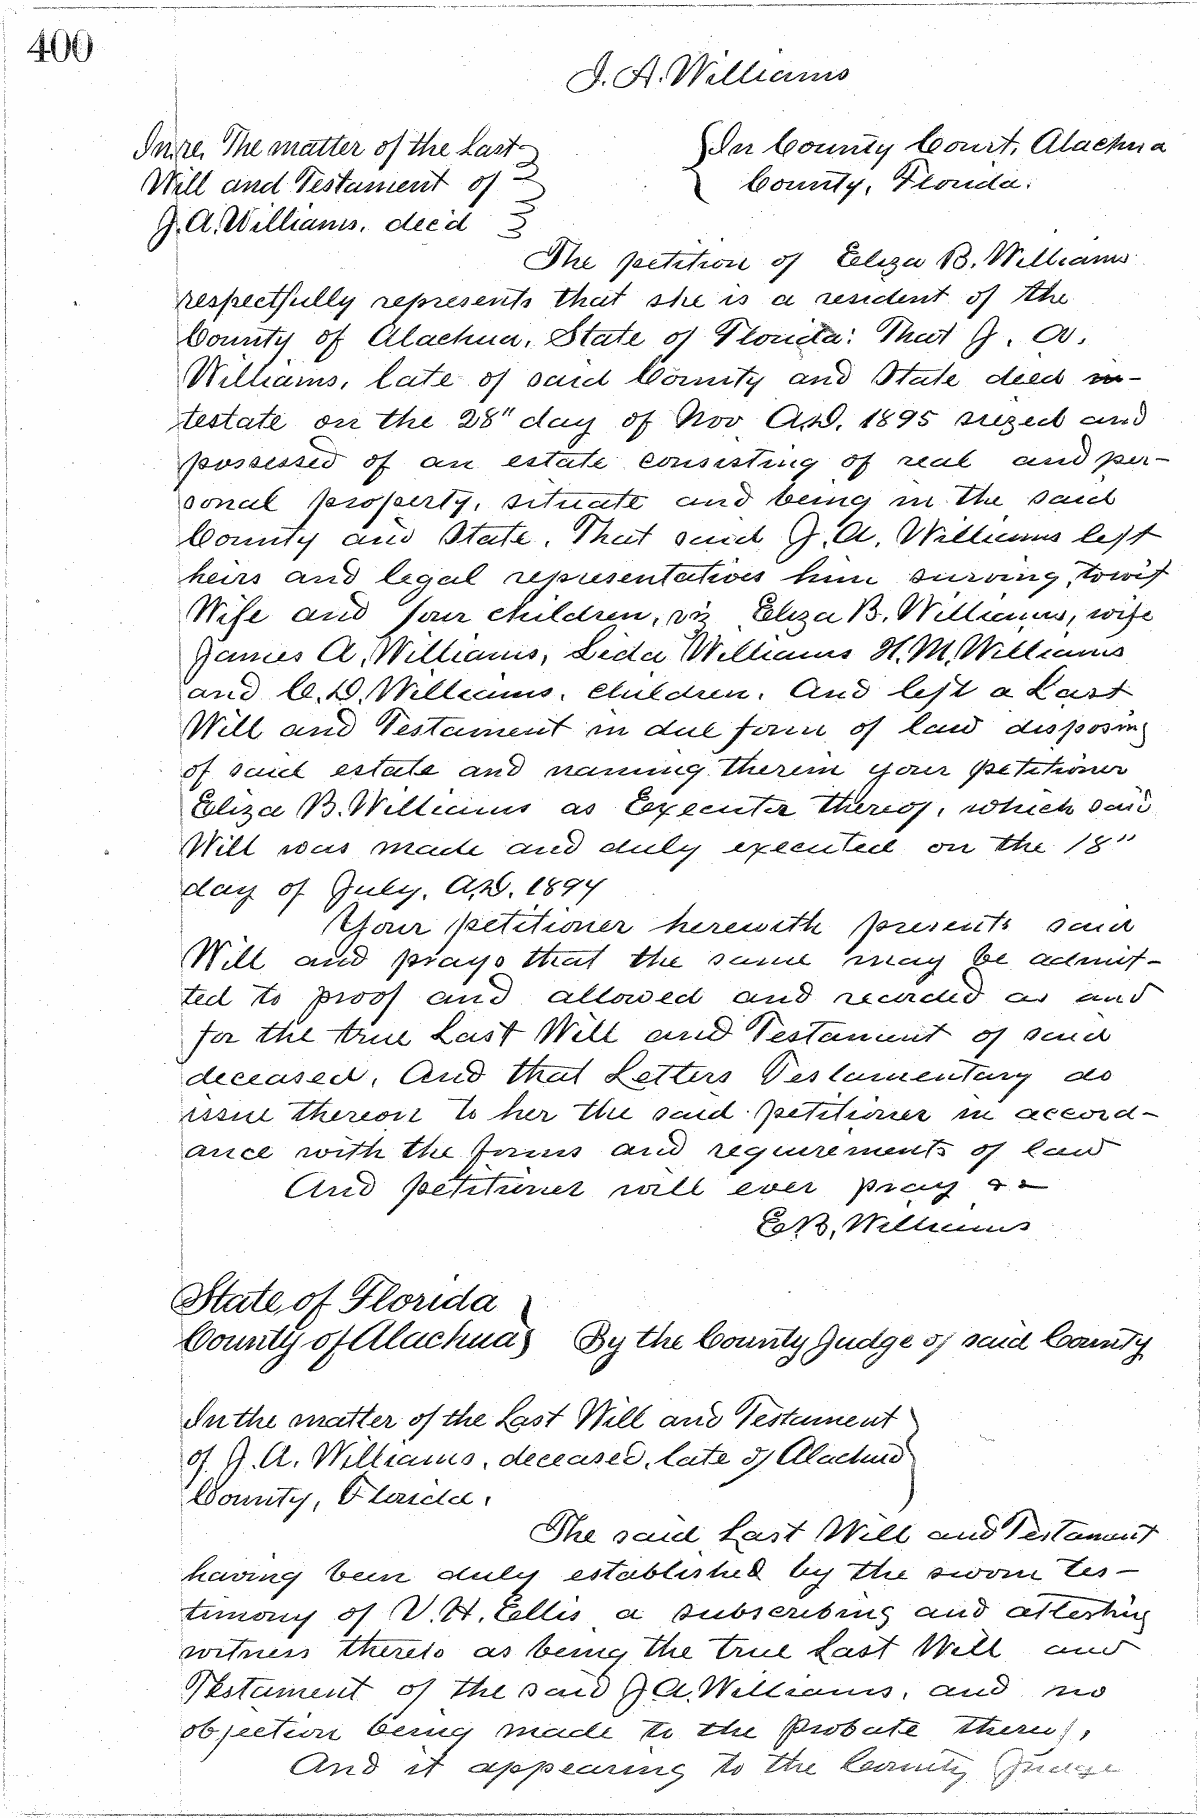 400
J. A. Williams
In re, The matter of the Last
Will and Testament of
J. A. Williams, dec'd
In County Court, Alachua
County, Florida.
The petition of Eliza B. Williams
respectfully represents that she is a resident of the
County of Alachua, State of Florida: That J. A.
Williams, late of said County and State died in-
testate on the 28" day of Nov A.D. 1895 siezed and
possessed of an estate consisting of real and per-
sonal property, situate and being in the said
County and State. That said J. A. Williams left
heirs and legal representatives him surving, towit
Wife and four children, viz Eliza B. Williams, wife
James A, Williams, Lida Williams H. M. Williams
and C. D. Williams, children. And left a Last
Will and Testament in due form of law disposing
of said estate and naming therein your petitioner
Eliza B. Williams as Executor thereof, which said
Will was made and duly executed on the 18"
day of July, A.D. 1894
Your petitioner herewith presents said
Will and prays that the same may be admit-
ted to proof and allowed and recorded as and
for the true Last Will and Testament of said
deceased, And that Letters Testamentary do
issue thereon to her the said petitioner in accord-
ance with the forms and requirements of law
And petitioner will ever pray &c
E. B. Williams
State of Florida
County of Alachua By the County Judge of said County
In the matter of the Last Will and Testament
of J. A. Williams, deceased, late of Alachua
County, Florida.
The said Last Will and Testament
having been duly established by the sworn tes-
timony of V. H. Ellis a subscribing and attesting
witness thereto as being the true Last Will and
Testament of the said J A. Williams, and no
objection being made to the probate thereof,
And it appearing to the County Judge